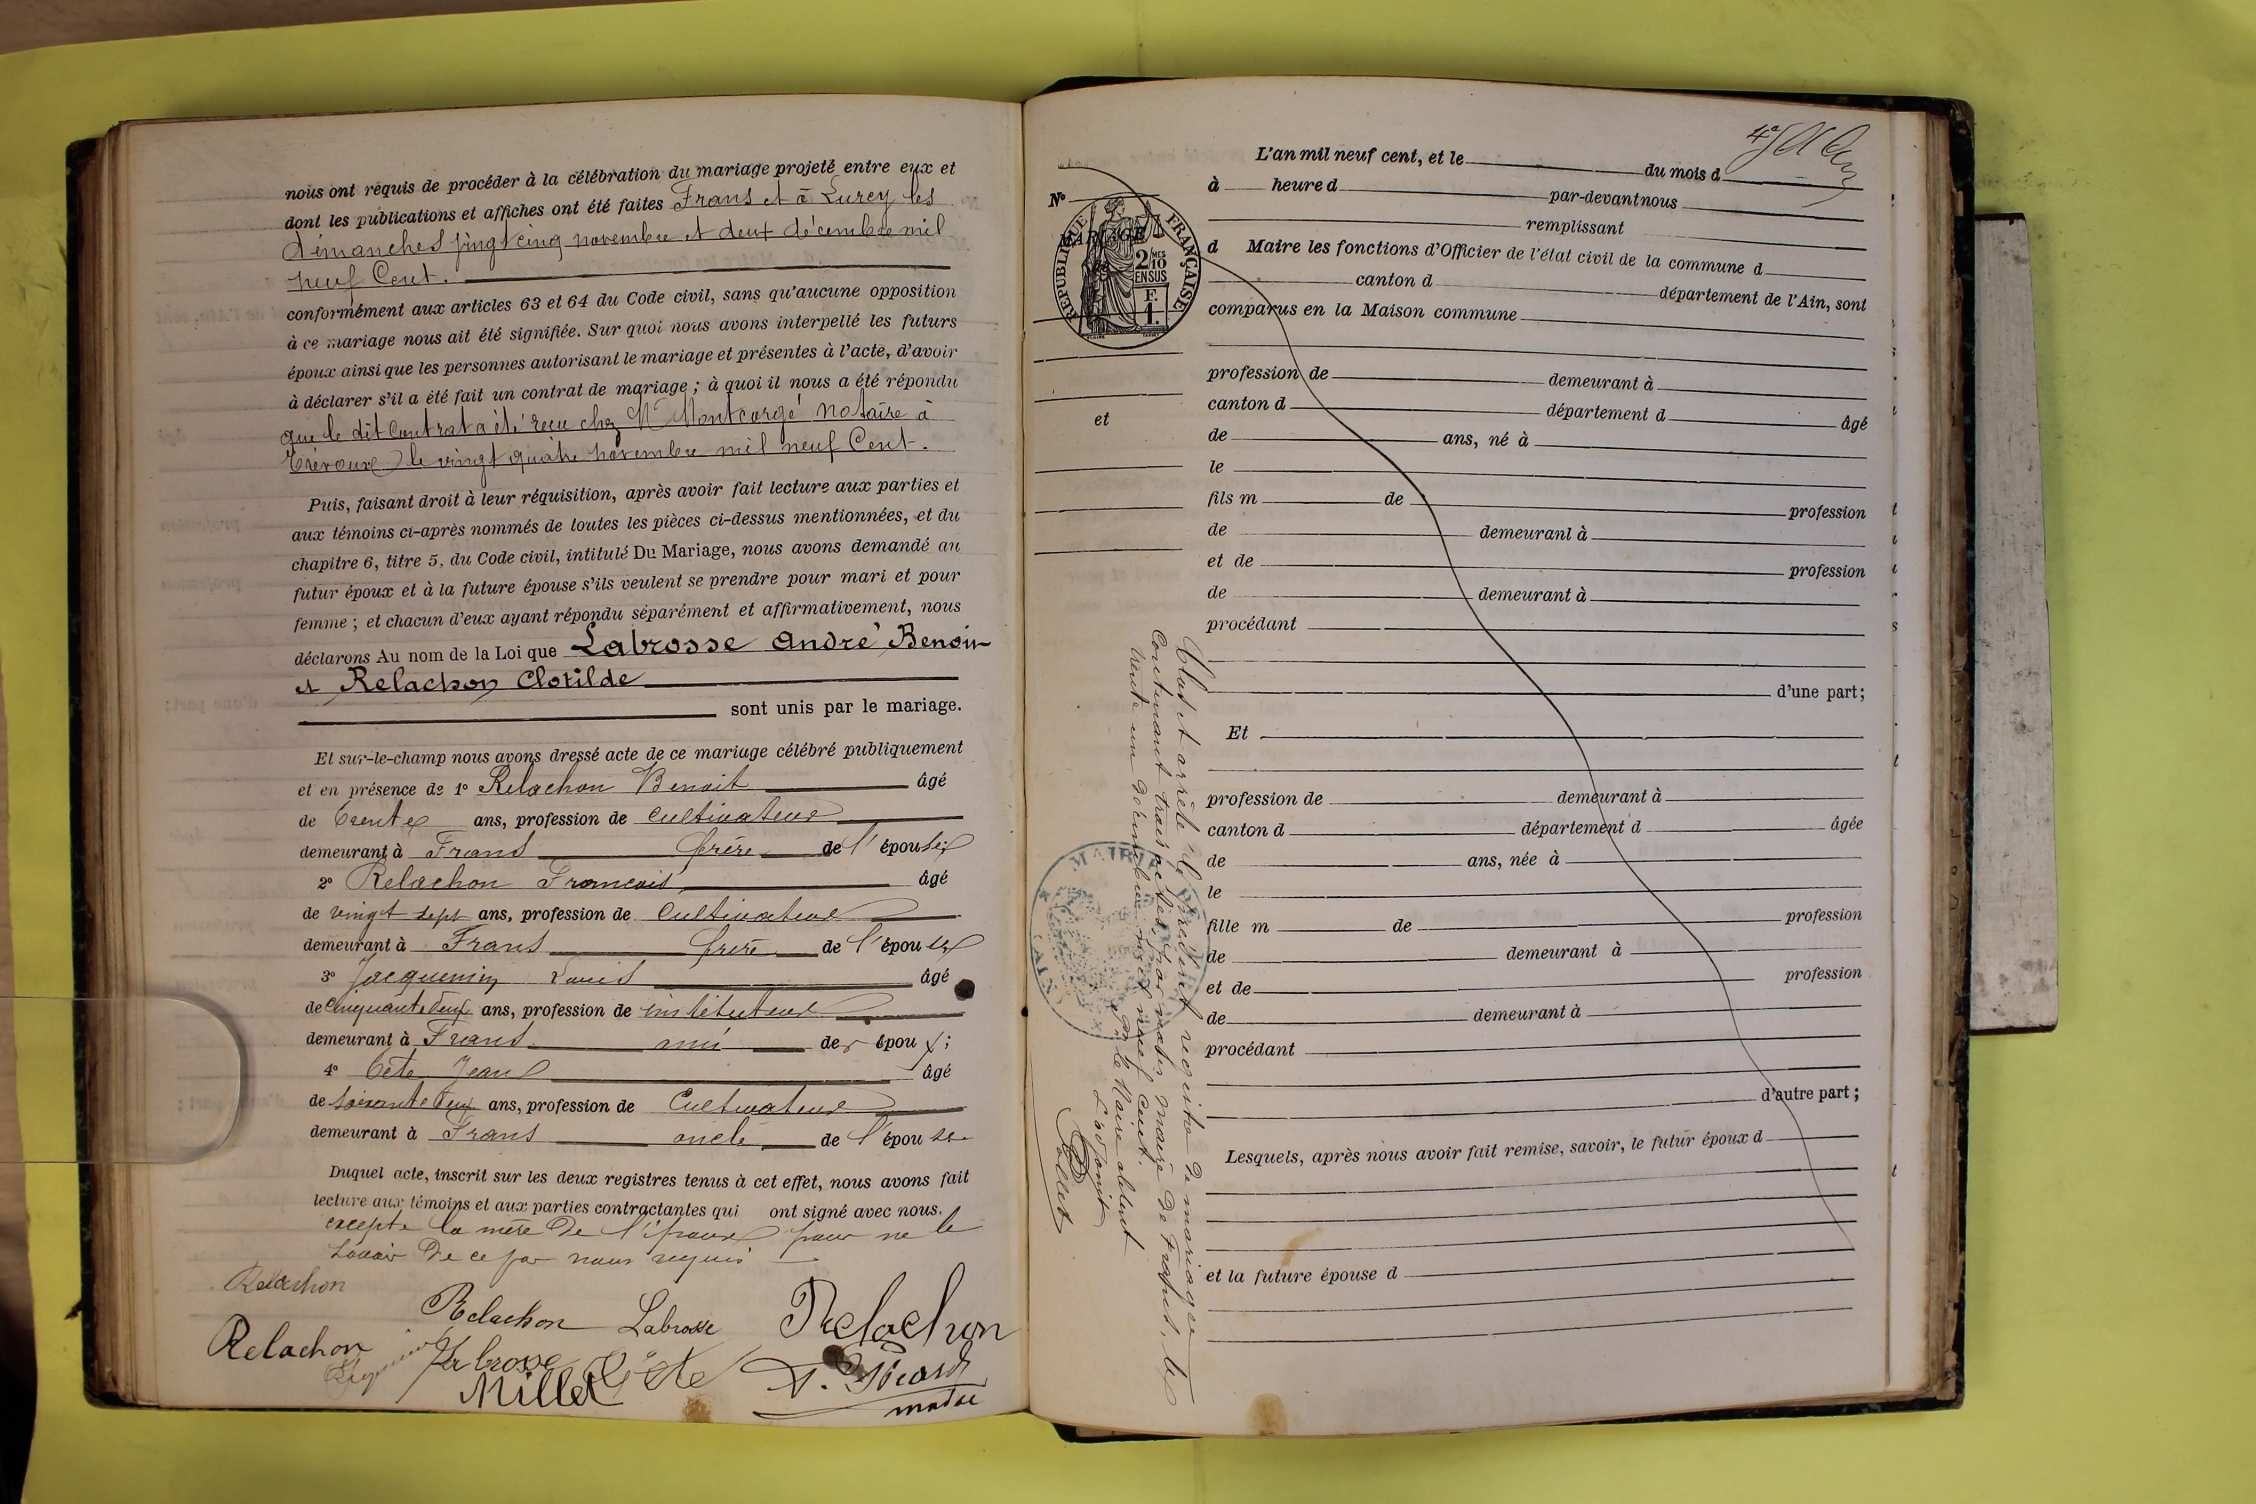 nous ont requis de procéder à la célébration du mariage projeté entre eux et
dont les publications et affiches ont été faites Frans et à Lurcy les
dimanches vingt cinq novembre et deux décembre mil
neuf Cent.
conformément aux articles 63 et 64 du Code civil, sans qu'aucune opposition
à ce mariage nous ait été signifiée. Sur quoi nous avons interpellé les futurs
époux ainsi que les personnes autorisant le mariage et présentes à l'acte, d'avoir
à déclarer s'il a été fait un contrat de mariage ; à quoi il nous a été répondu
que le dit Contrat a été reçu chez Me Montcorgé notaire à
Trévoux le vingt quatre novembre mil neuf Cent.
Puis, faisant droit à leur réquisition, après avoir fait lecture aux parties et
aux témoins ci-après nommés de toutes les pièces ci-dessus mentionnées, et du
chapitre 6, titre 5, du Code civil, intitulé Du Mariage, nous avons demandé au
futur époux et à la future épouse s'ils veulent se prendre pour mari et pour
femme ; et chacun d'eux ayant répondu séparément et affirmativement, nous
déclarons Au nom de la Loi que Labrosse André Benoit
et Relachon Clotilde
sont unis par le mariage.
Et sur-le-champ nous avons dressé acte de ce mariage célébré publiquement
et en présence de 1° Relachon Benoit âgé
de trente ans, profession de cultivateur
demeurant à Frans frère de l'épouse
2° Relachon Francois âgé
de vingt sept ans, profession de cultivateur
demeurant à Frans frère de l'épouse
3° Jacquemin Louis âgé
de cinquante deux ans, profession de instituteur
demeurant à Frans ami des époux ;
4° Cête Jean âgé
de soixante deux ans, profession de Cultivateur
demeurant à Frans oncle de l'épouse
Duquel acte, inscrit sur les deux registres tenus à cet effet, nous avons fait
lecture aux témoins et aux parties contractantes qui ont signé avec nous.
excepté la mère de l'époux pour ne le
savoir de ce par nous requis
Relachon
Relachon Labrosse Relachon
Relachon
Labrosse Cête
Millet
maire
L'an mil neuf cent, et le du mois d
à heure d par-devant nous
remplissant
d Maire les fonctions d'Officier de l'état civil de la commune d
canton d département de l'Ain, sont
comparus en la Maison commune
profession de demeurant à
canton d département d âgé
de ans, né à
le
fils m de profession
de demeurant à
et de profession
de demeurant à
procédant
d'une part;
Et
profession de demeurant à
canton d département d âgée
de ans, née à
le
fille m de profession
de demeurant à
et de profession
de demeurant à
procédant
d'autre part ;
Lesquels, après nous avoir fait remise, savoir, le futur époux d
et la future épouse d
N°
MARIAGE
de
et
RÉPUBLIQUE FRANÇAISE
2/10 MES
EN SUS
F.
1.
MAIRIE
(AIN)
Clos et arrêté le présent registre de mariage
Contenant trois actes, par nous maire de Frans, le
trente un décembre mil neuf cent.
Pr le Maire absent
L'adjoint